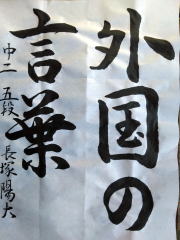 外国の
言葉
中二 五段 長塚陽大